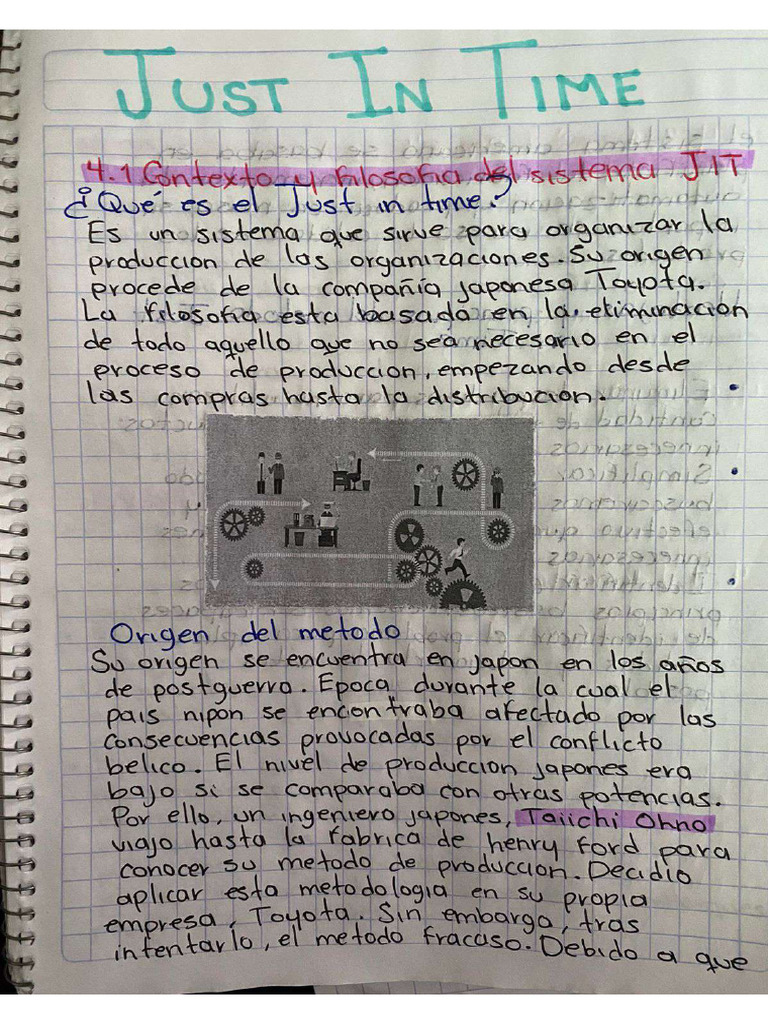 JUST IN TIME
4.1 Contexto y filosofia del sistema JIT
¿Que es el Just in time?
Es un sistema que sirve para organizar la
produccion de las organizaciones. Su origen
procede de la compañía japonesa Toyota.
La filosofia esta basada en la eliminacion
de todo aquello que no sea necesario en el
proceso de produccion, empezando desde
las compras hasta la distribucion.
Origen del metodo
Su origen se encuentra en japon en los años
de postguerra. Epoca durante la cual el
pais nipon se encontraba afectado por las
consecuencias provocadas por el conflicto
belico. El nivel de produccion japones era
bajo si se comparaba con otras potencias.
Por ello, un ingeniero japones, Taiichi Ohno
viajo hasta la fabrica de henry Ford para
conocer su metodo de produccion. Decidio
aplicar esta metodologia en su propia
empresa, Toyota. Sin embargo, tras
intentarlo, el metodo fracaso. Debido a que